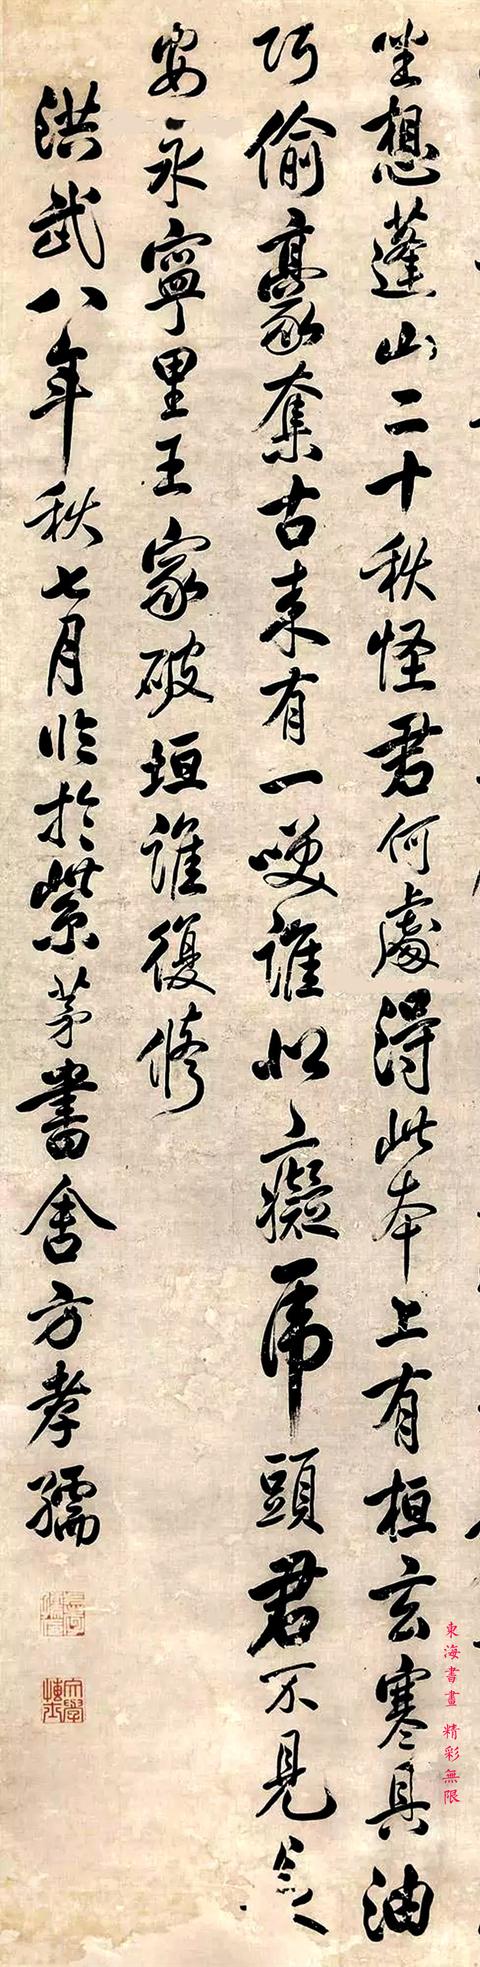 坐想蓬山二十秋怪君何處得此本上有桓玄寒具油
巧偷豪奪古來有一咲誰似癡虎頭君不見長
安永寧里王家破垣誰復脩
洪武八年秋七月臨於紫茅書舍方孝孺
東海書畫 精彩無限